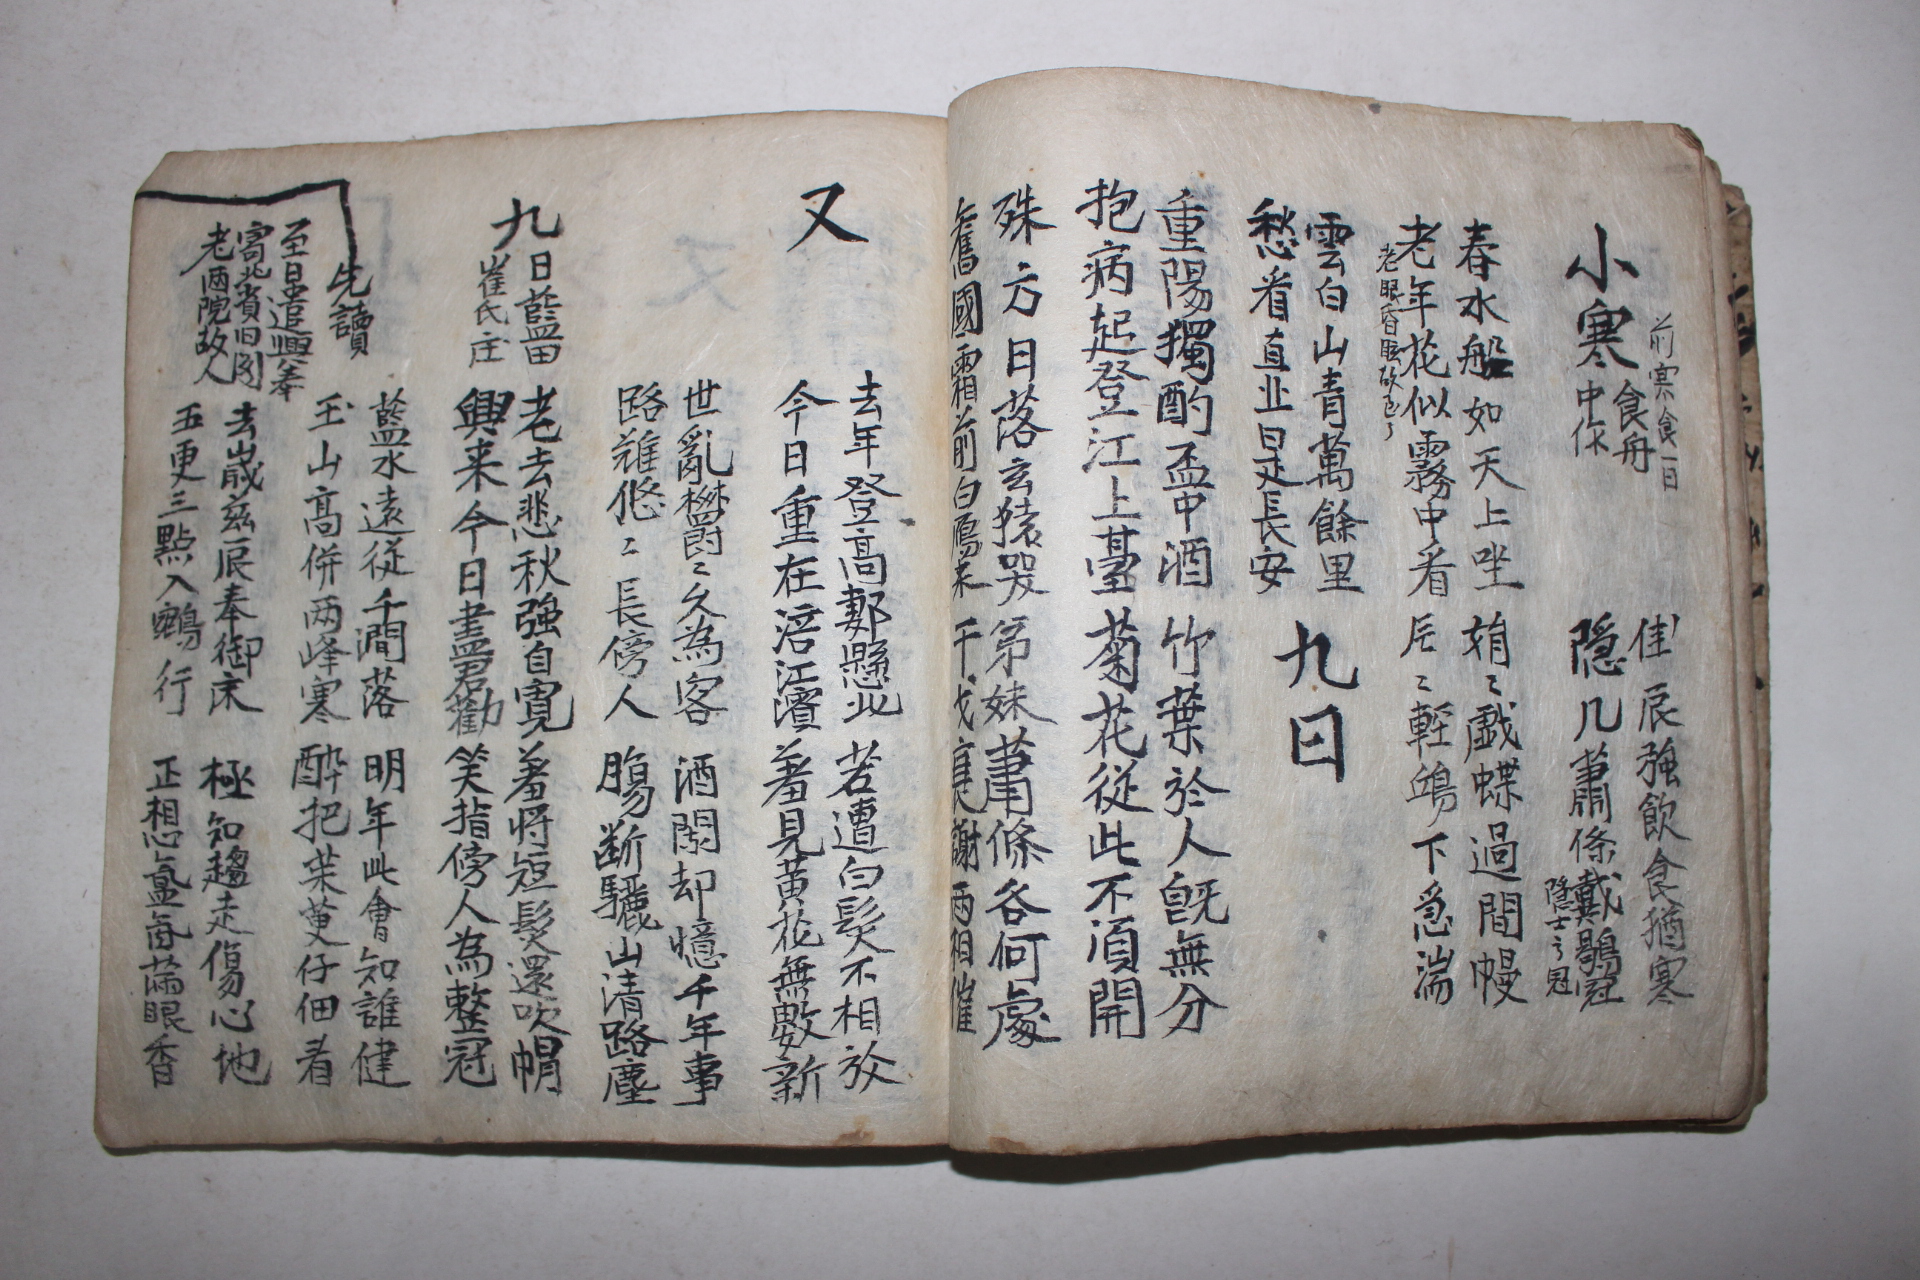 小寒食舟中作
前寒食一日
佳辰強飲食猶寒
隱几蕭條戴鶡冠
隱士之冠
春水船如天上坐 娟〻戱蝶過間幔
老年花似霧中看 片〻輕鷗下急湍
老眼昏眩故云
雲白山青萬餘里
愁看直北是長安
九日
重陽獨酌盃中酒 竹葉於人旣無分
抱病起登江上臺 菊花從此不須開
殊方日落玄猿哭 弟妹蕭條各何處
舊國霜前白鴈来 干戈衰謝兩相催
又
去年登高郪縣北 若遭白髮不相放
今日重在涪江濱 羞見黃花無數新
世亂鬱〻久為客 酒闌却憶千年事
路難悠〻長傍人 腸斷驪山清路塵
九日藍田
崔氏庄
老去悲秋強自寬 羞將短髮還吹帽
興来今日盡君勸 笑指傍人為整冠
藍水遠從千澗落 明年此會知誰健
玉山高併兩峰寒 醉把茱萸仔佃看
先讀
至日遣興奉
寄北省旧閣
老兩院故人
去歲茲辰奉御床 極知趨走傷心地
五更三點入鵷行 正想氳氤滿眼香